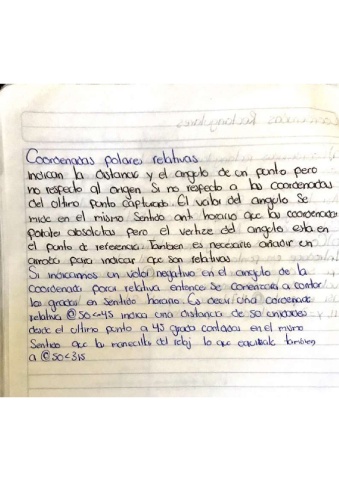 Coordenadas polares relativas
Indican la distancia y el angulo de un punto pero
no respecto al origen Si no respecto a las coordenadas
del ultimo punto capturado. El valor del angulo Se
mide en el mismo Sentido anti horario que las coordenadas
polales absolutas pero el vertize del angulo esta en
el punto de referencia. Tambien es necesario añadir un
arroba para indicar que son relativas
Si indicamos un valor negativo en el angulo de la
coordenada polar relativa entonces Se comenzara a contar
los grados en Sentido horario. Es decir una coordenada
relativa @50<-45 indica una distancia de 50 unidades
desde el ultimo punto a 45 grados contados en el mismo
Sentido que las manecillas del reloj lo que equivale tambien
a @50<315